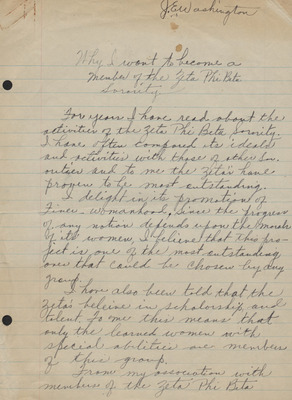 J.E. Washington
Why I want to become a
Member of the Zeta Phi Beta
Sorority
For years I have read about the
activities of the Zeta Phi Beta Sorority.
I have often compared its ideals
and activities with those of other Sor-
orities and to me the Zeta's have
proven to be most outstanding.
I delight in its promotion of
Finer-womanhood, since the progress
of any nation depends upon the morals
of its women, I believe that the pro-
ject is one of the most outstanding
ones that could be chosen by any
group.
I have also been told that the
Zeta's beleive in scholarship and
talent. To me this means that
only the learned women with
special abilities are members
of this group.
From my association with
members of the Zeta Phi Beta